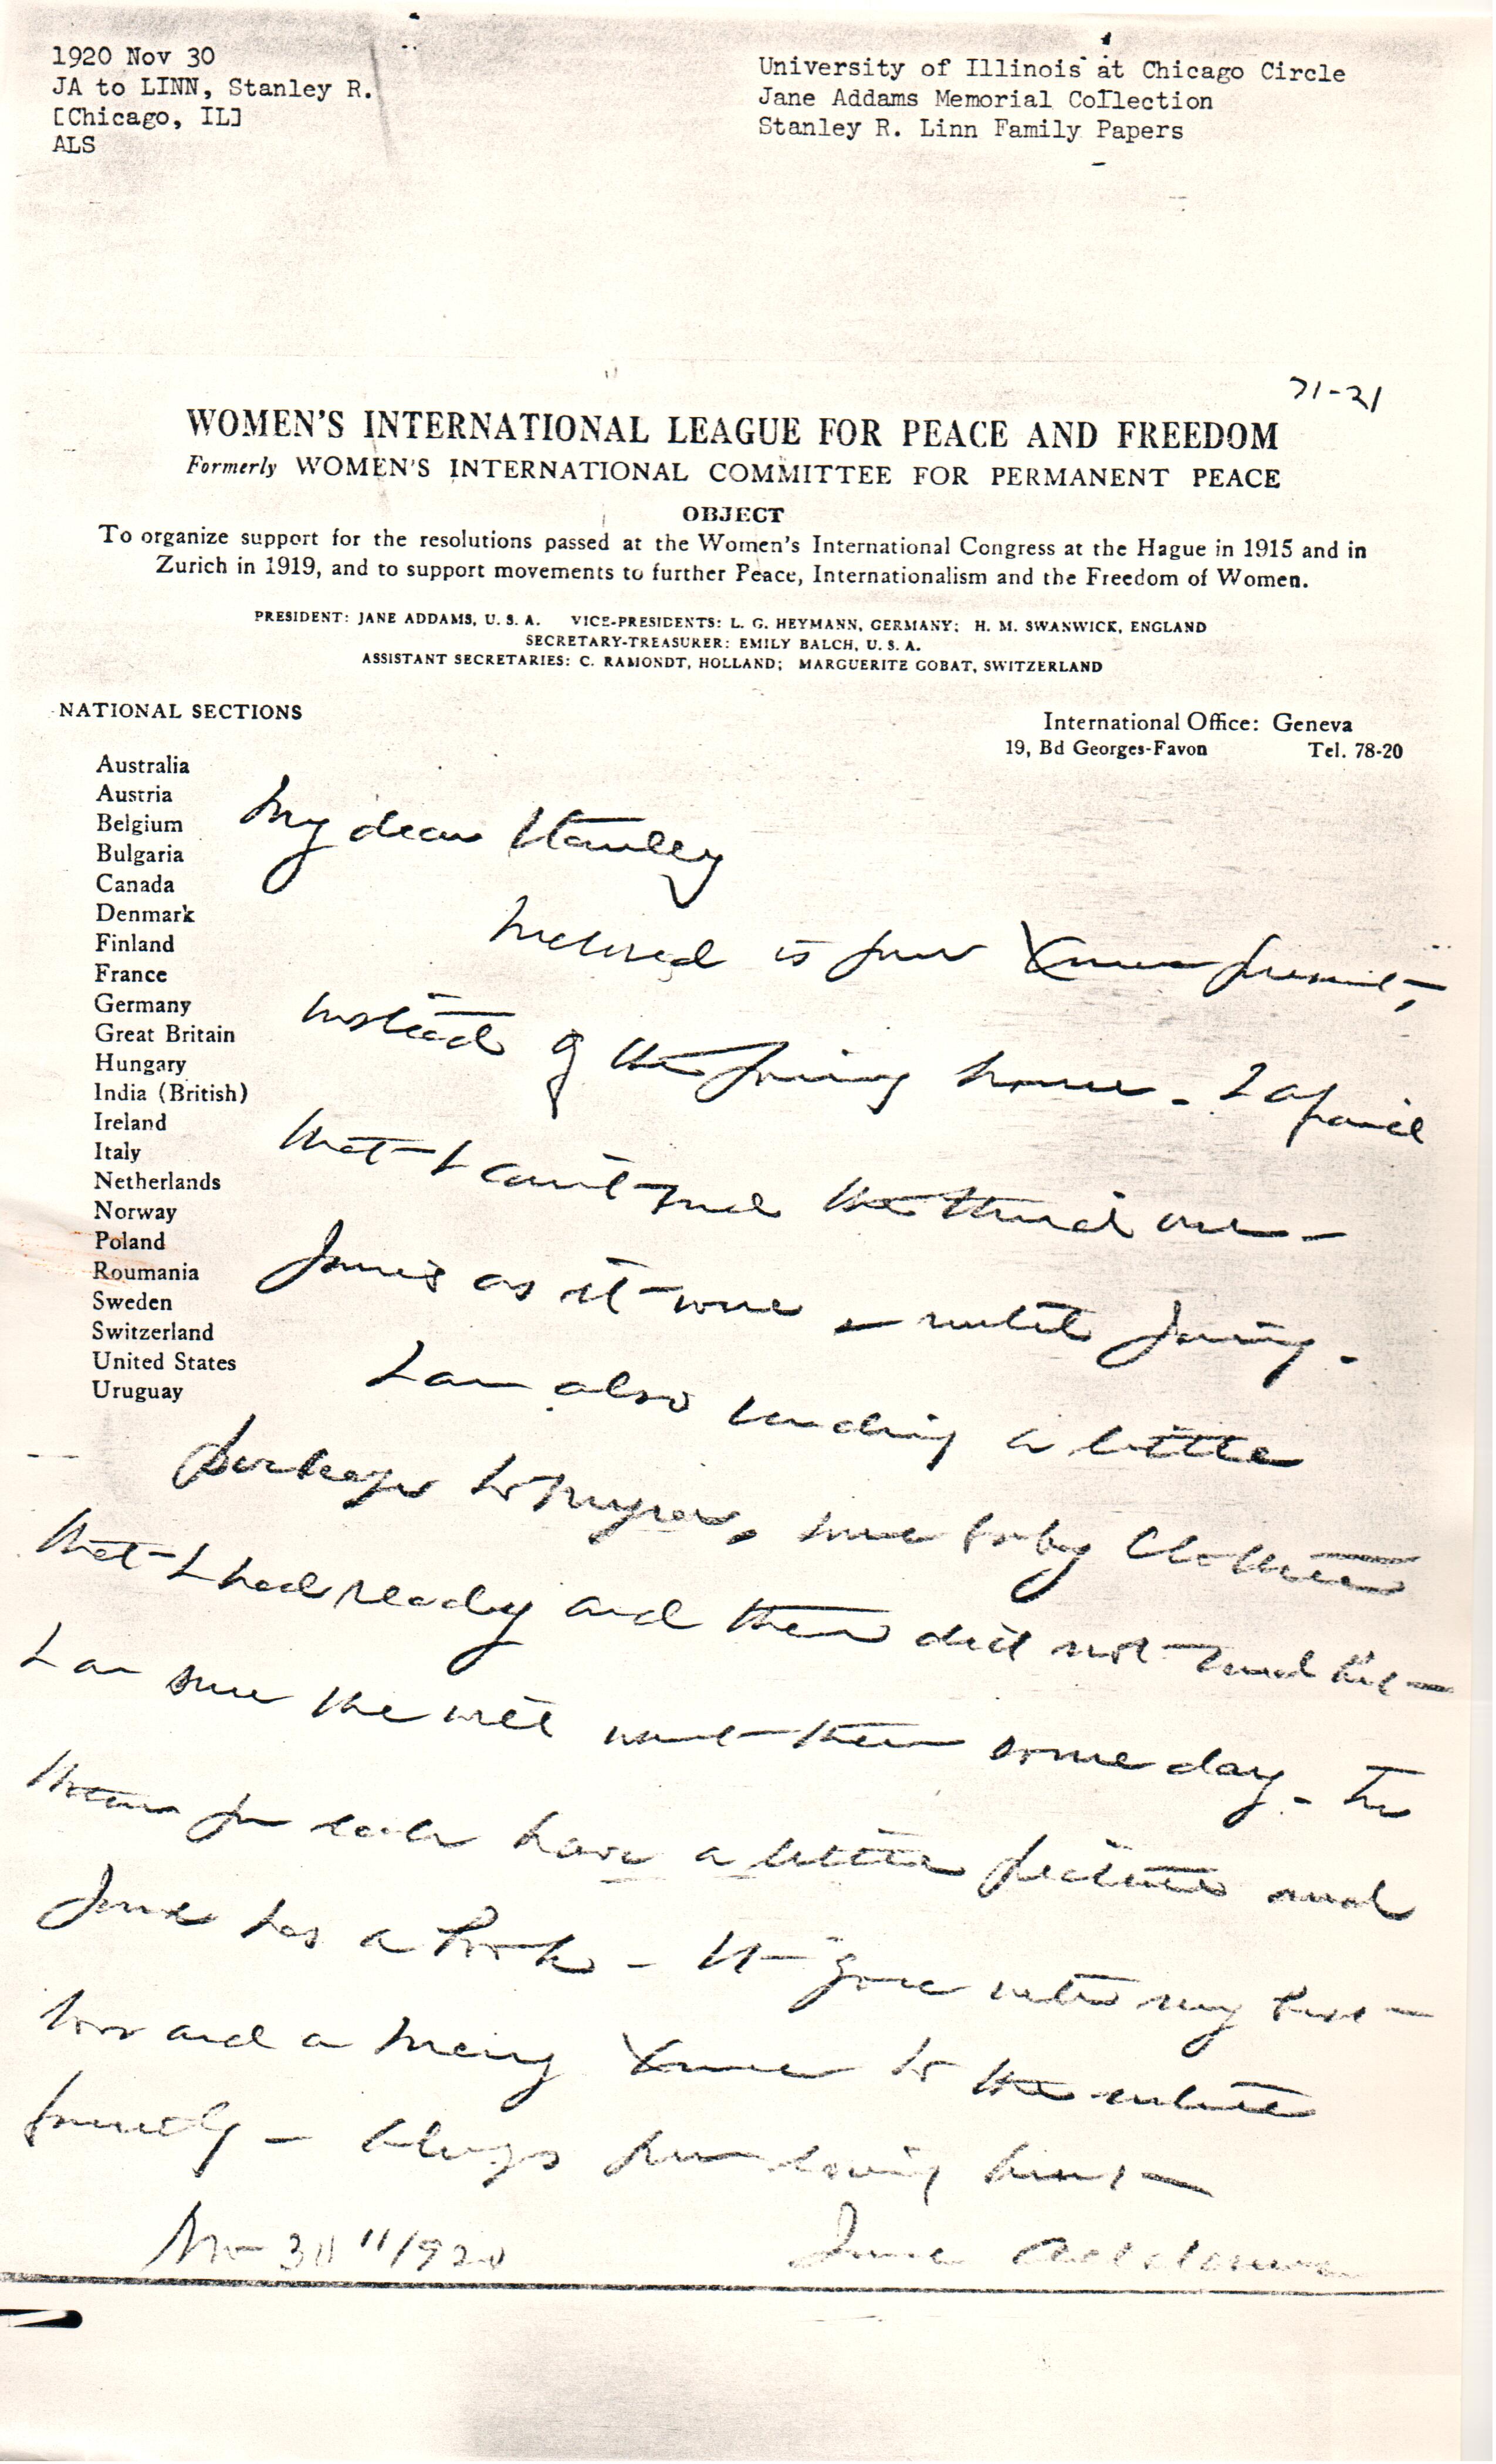 1920 Nov 30
JA to LINN, Stanley R.
[Chicago, IL]
ALS
University of Illinois at Chicago Circle
Jane Addams Memorial Collection
Stanley R. Linn Family Papers
71-21
WOMEN'S INTERNATIONAL LEAGUE FOR PEACE AND FREEDOM
Formerly WOMEN'S INTERNATIONAL COMMITTEE FOR PERMANENT PEACE
OBJECT
To organize support for the resolutions passed at the Women's International Congress at the Hague in 1915 and in
Zurich in 1919, and to support movements to further Peace, Internationalism and the Freedom of Women.
PRESIDENT: JANE ADDAMS, U. S. A. VICE-PRESIDENTS: L. G. HEYMANN, GERMANY; H. M. SWANWICK, ENGLAND
SECRETARY-TREASURER: EMILY BALCH, U. S. A.
ASSISTANT SECRETARIES: C. RAMONDT, HOLLAND; MARGUERITE GOBAT, SWITZERLAND
NATIONAL SECTIONS
International Office: Geneva
19, Bd Georges-Favon Tel. 78-20
Australia
Austria
Belgium
Bulgaria
Canada
Denmark
Finland
France
Germany
Great Britain
Hungary
India (British)
Ireland
Italy
Netherlands
Norway
Poland
Roumania
Sweden
Switzerland
United States
Uruguay
My dear Stanley
Inclosed is your Xmas present,
instead of the - I afraid
that I can't send the third one -
as it were - until
I am also sending a little
package to Myra, some baby clothes
that I had ready and then did not send but
I am sure she will want them some day - The
for each have a little picture and
Jane has a book - It goes with my best
love and a merry Xmas to the whole
family - Always your loving Aunt
Nov 30" 1920 Jane Addams